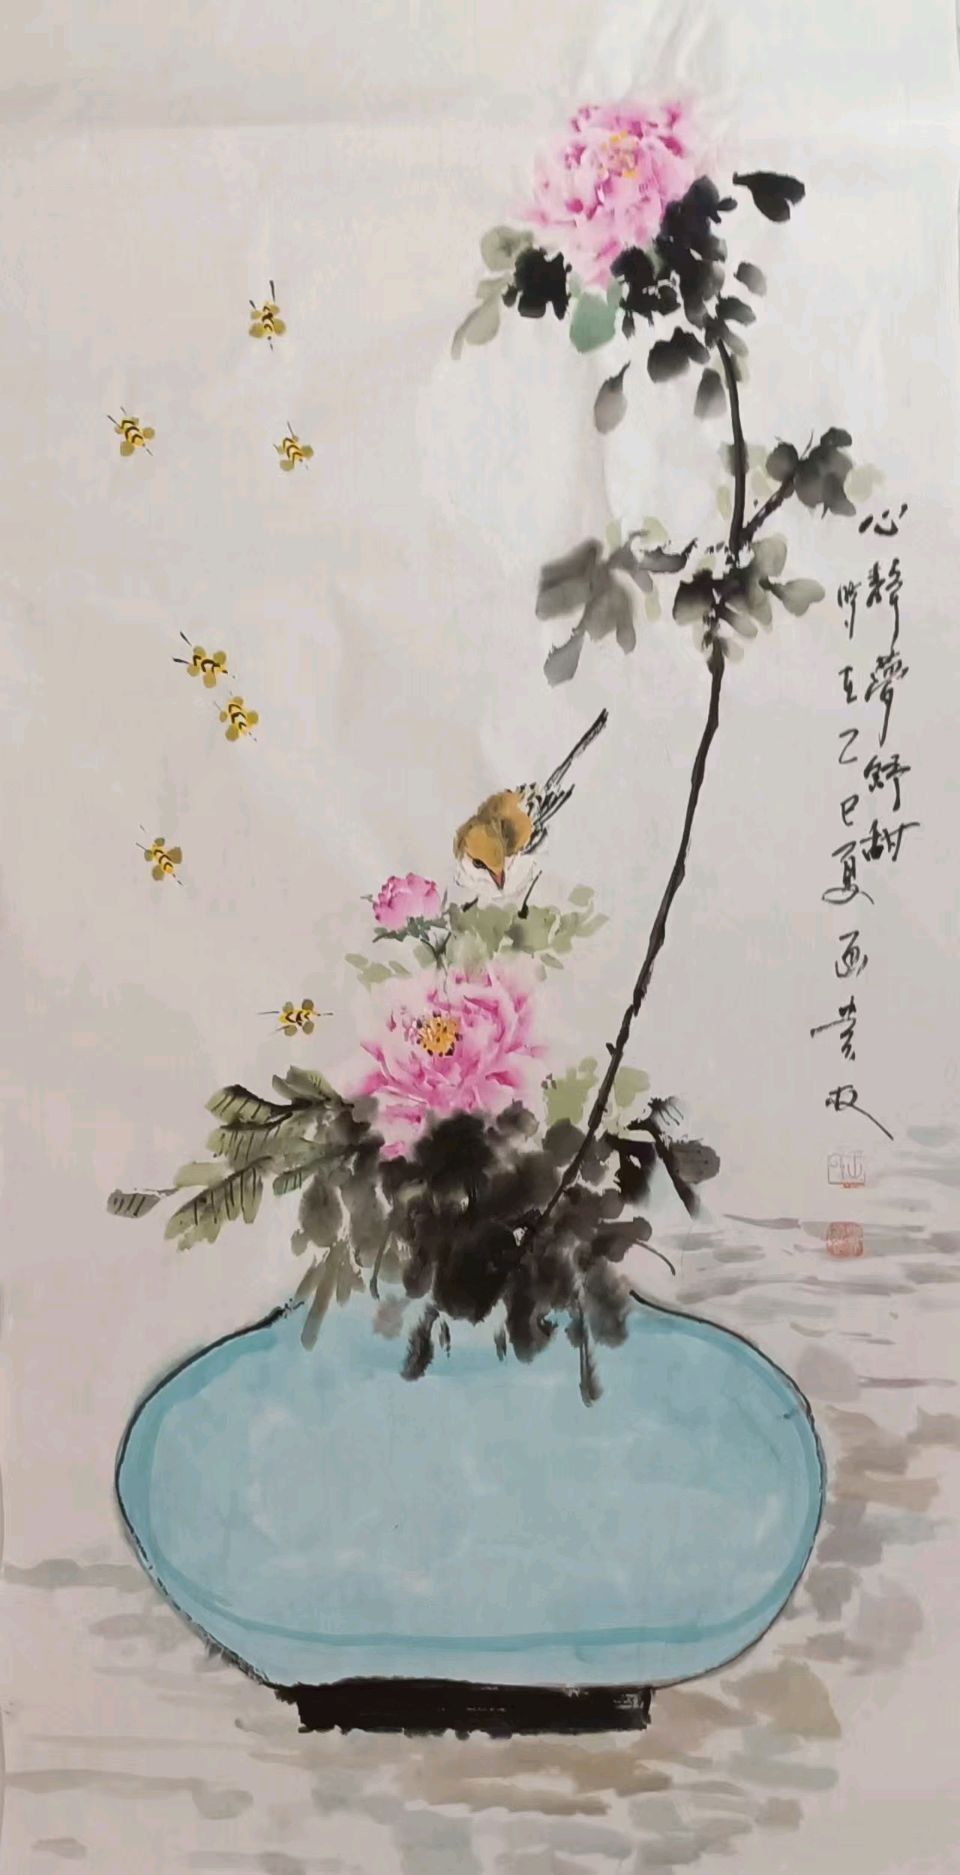 心静梦舒甜
时在乙巳夏画